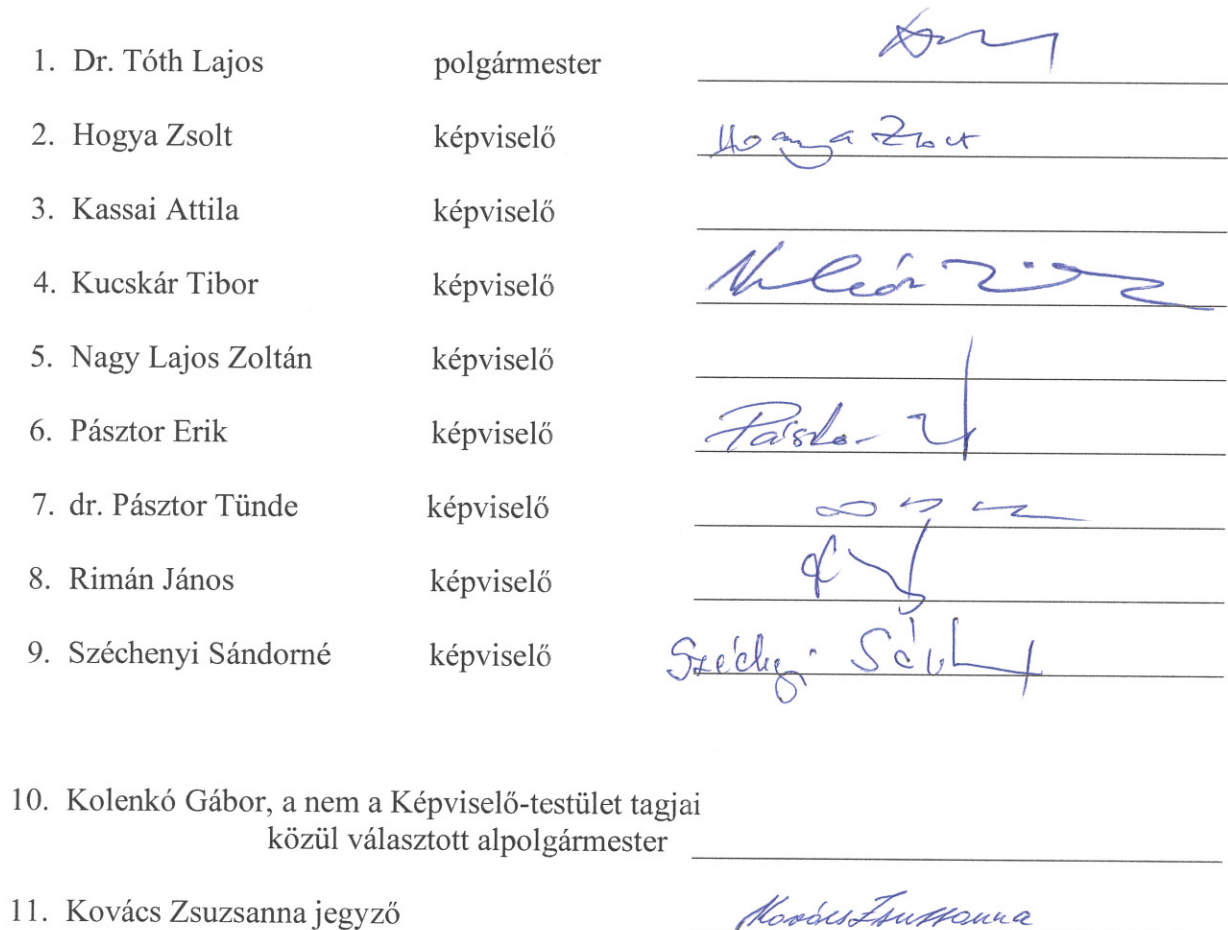 1. Dr. Tóth Lajos polgármester
2. Hogya Zsolt képviselő Hogya Zsolt
3. Kassai Attila képviselő
4. Kucskár Tibor képviselő
5. Nagy Lajos Zoltán képviselő
6. Pásztor Erik képviselő Pásztor
7. dr. Pásztor Tünde képviselő
8. Rimán János képviselő
9. Széchenyi Sándorné képviselő
10. Kolenkó Gábor, a nem a Képviselő-testület tagjai
közül választott alpolgármester
11. Kovács Zsuzsanna jegyző Kovács Zsuzsanna